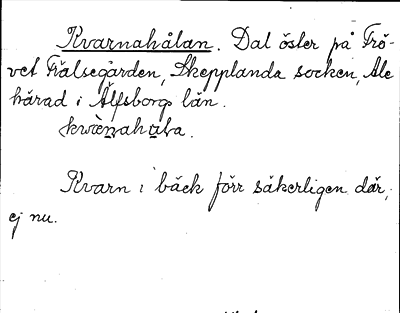 Kvarnahålan. Dal öster på Frö-
vet Frälsegården, Skepplanda socken, Ale
härad i Älfsborgs län.
Kvarn i bäck förr säkerligen där,
ej nu.